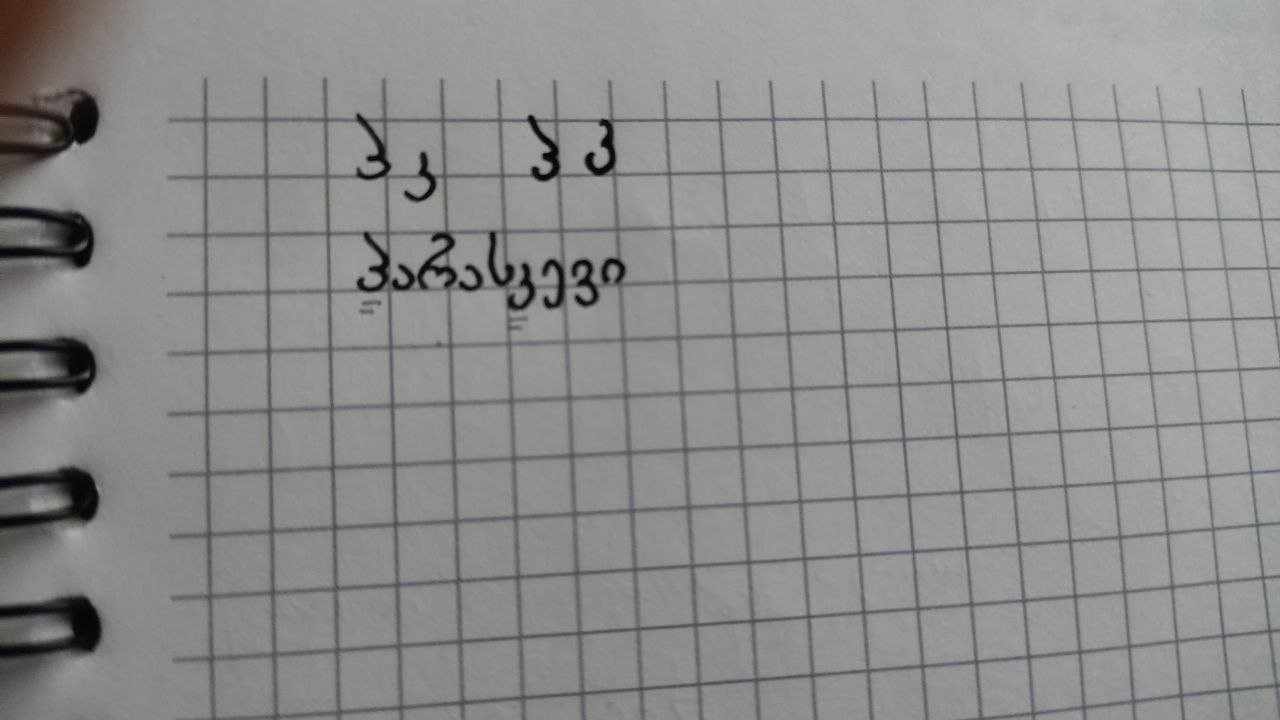 პ კ პ ვ
პარასკევი